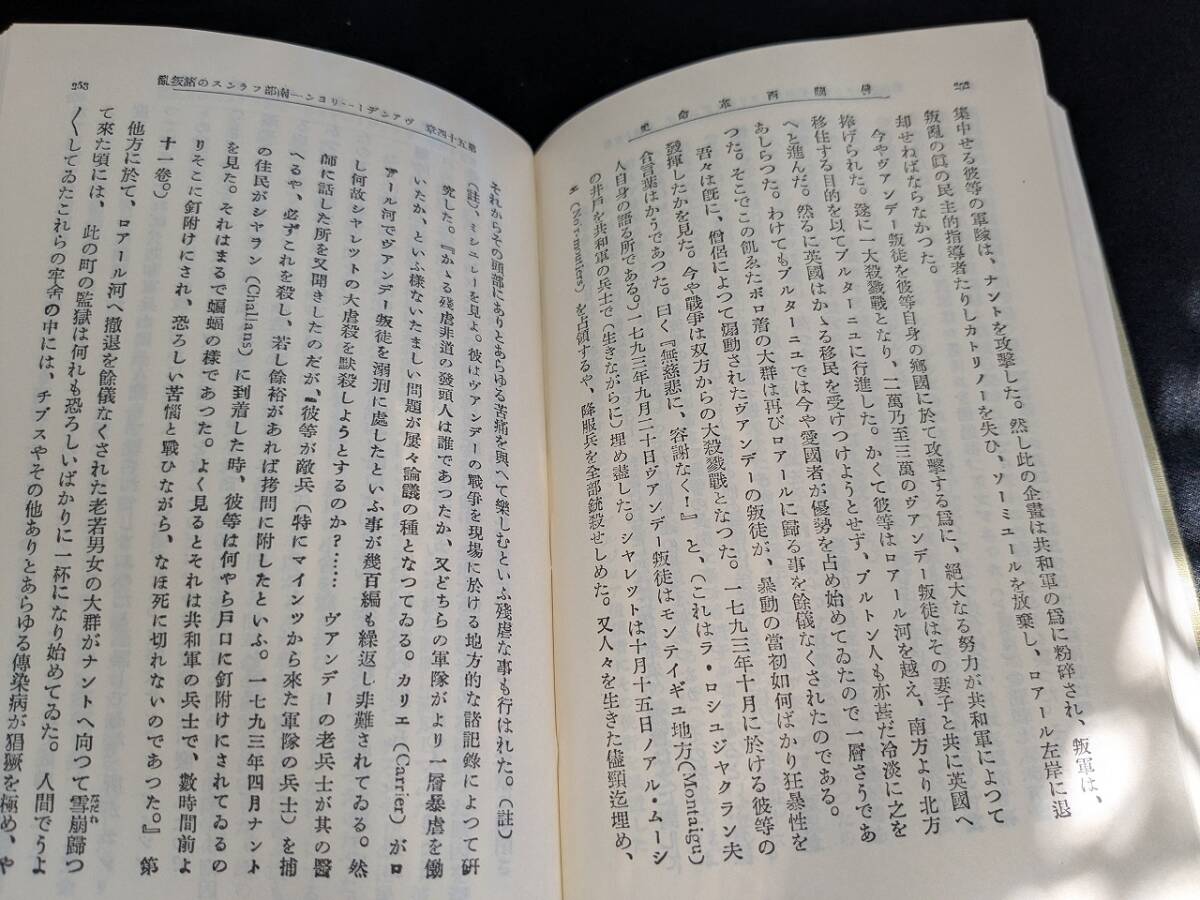 佛蘭西革命史
252
集中せる彼等の軍隊は、ナントを攻撃した。然し此の企畫は共和軍の爲に粉碎され、叛軍は、
叛亂の眞の民主的指導者たりしカトリノーを失ひ、ソーミュールを放棄し、ロアール左岸に退
却せねばならなかつた。
今やヴァンデー叛徒を彼等自身の鄕國に於て攻撃する爲に、絕大なる努力が共和軍によつて
捧げられた。遂に一大殺戮戰となり、二萬乃至三萬のヴァンデー叛徒はその妻子と共に英國へ
移住する目的を以てブルターニュに行進した。かくて彼等はロアール河を越え、南方より北方
へと進んだ。然るに英國はかゝる移民を受けつけようとせず、ブルトン人も亦甚だ冷淡に之を
あしらつた。わけてもブルターニュでは今や愛國者が優勢を占め始めてゐたので一層さうであ
つた。そこでこの飢ゑたボロ着の大群は再びロアールに歸る事を餘儀なくされたのである。
吾々は旣に、僧侶によつて煽動されたヴァンデーの叛徒が、暴動の當初如何ばかり狂暴性を
發揮したかを見た。今や戰爭は双方からの大殺戮戰となつた。一七九三年十月に於ける彼等の
合言葉はかうであつた。曰く『無慈悲に、容謝なく！』と、(これはラ・ロシュジャクラン夫
人自身の語る所である。)一七九三年九月二十日ヴァンデー叛徒はモンテイギユ地方(Montaigu)
の井戶を共和軍の兵士で（生きながらに）埋め盡した。シャレットは十月十五日ノアル・ムーシ
エ(Noirmoutier)を占領するや、降服兵を全部銃殺せしめた。又人々を生きた儘頸迄埋め、
第五十四章 ヴァンデー―リヨン―南部フランスの諸叛亂
253
それからその頭部にありとあらゆる苦痛を與へて樂しむといふ殘虐な事も行はれた。（註）
（註）、ミシュレーを見よ。彼はヴァンデーの戰爭を現場に於ける地方的な諸記錄によつて硏
究した。『かゝる殘虐非道の發頭人は誰であつたか、又どちらの軍隊がより一層暴虐を働
いたか、といふ樣ないたましい問題が屡々論議の種となつてゐる。カリエ（Carrier）がロ
アール河でヴァンデー叛徒を溺刑に處したといふ事が幾百編も繰返し非難されてゐる。然
し何故シャレットの大虐殺を默殺しようとするのか？……　ヴァンデーの老兵士が其の醫
師に話した所を又聞きしたのだが、彼等が敵兵（特にマインツから來た軍隊の兵士）を捕
へるや、必ずこれを殺し、若し餘裕があれば拷問に附したといふ。一七九三年四月ナント
の住民がシャラン（Challans）に到着した時、彼等は何やら戶口に釘附けにされてゐるの
を見た。それはまるで蝙蝠の樣であつた。よく見るとそれは共和軍の兵士で、數時間前よ
りそこに釘附けにされ、恐ろしい苦惱と戰ひながら、なほ死に切れないのであつた。』第
十一卷。）
他方に於て、ロアール河へ撤退を餘儀なくされた老若男女の大群がナントへ向つて雪崩歸つ
て來た頃には、此の町の監獄は何れも恐ろしいばかりに一杯になり始めてゐた。人間でうよ
〳〵してゐたこれらの牢舍の中には、チブスやその他ありとあらゆる傳染病が猖獗を極め、や